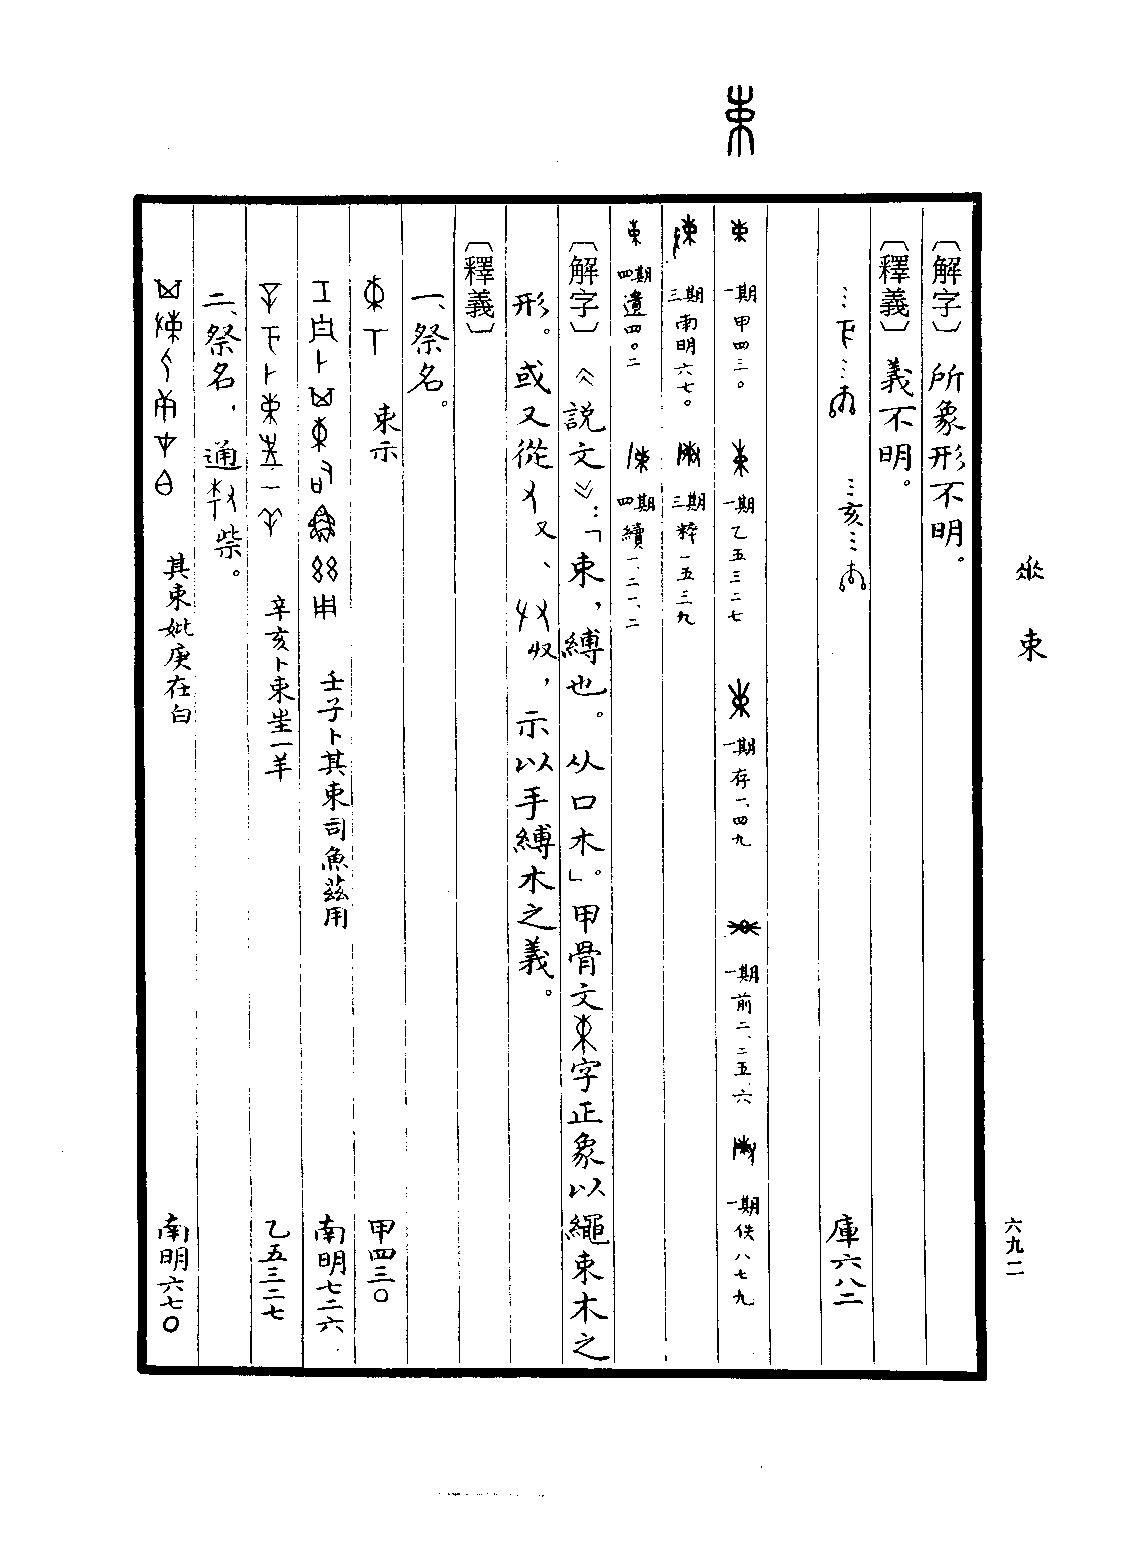 束
〔解字〕所象形不明。
〔釋義〕義不明。
…亥… 庫六八二
一期甲四三〇 一期乙五三二七 一期存一、四九 一期前二、二五、六 一期佚八七九
三期南明六七〇 三期粹一五三九
四期遺四〇二 四期續一、二一、二
〔解字〕《說文》:「束,縛也。从口木」。甲骨文字正象以繩束木之
形。或又從又、収,示以手縛木之義。
〔釋義〕
一、祭名。
束示 甲四三〇
壬子卜其束司魚茲用 南明七二六
辛亥卜束㞢一羊 乙五三二七
二、祭名,通柴。
其束妣庚在白 南明六七〇
束
六九二